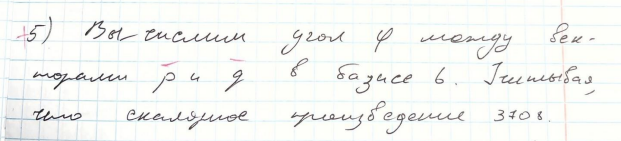 5) Вычислим угол φ между век-
торами p̄ и q̄ в базисе b. Учитывая,
что скалярное произведение